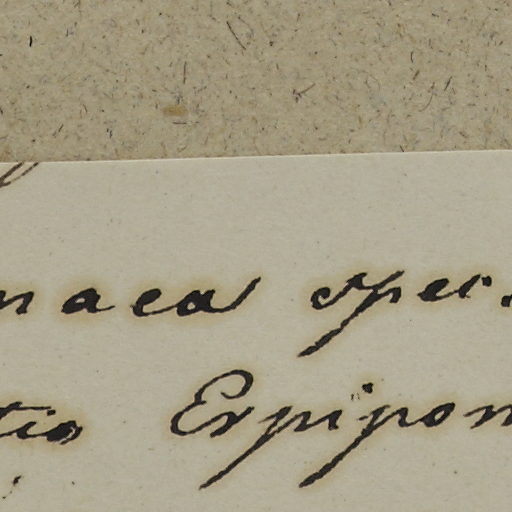 naea spec.
tio Erpipon